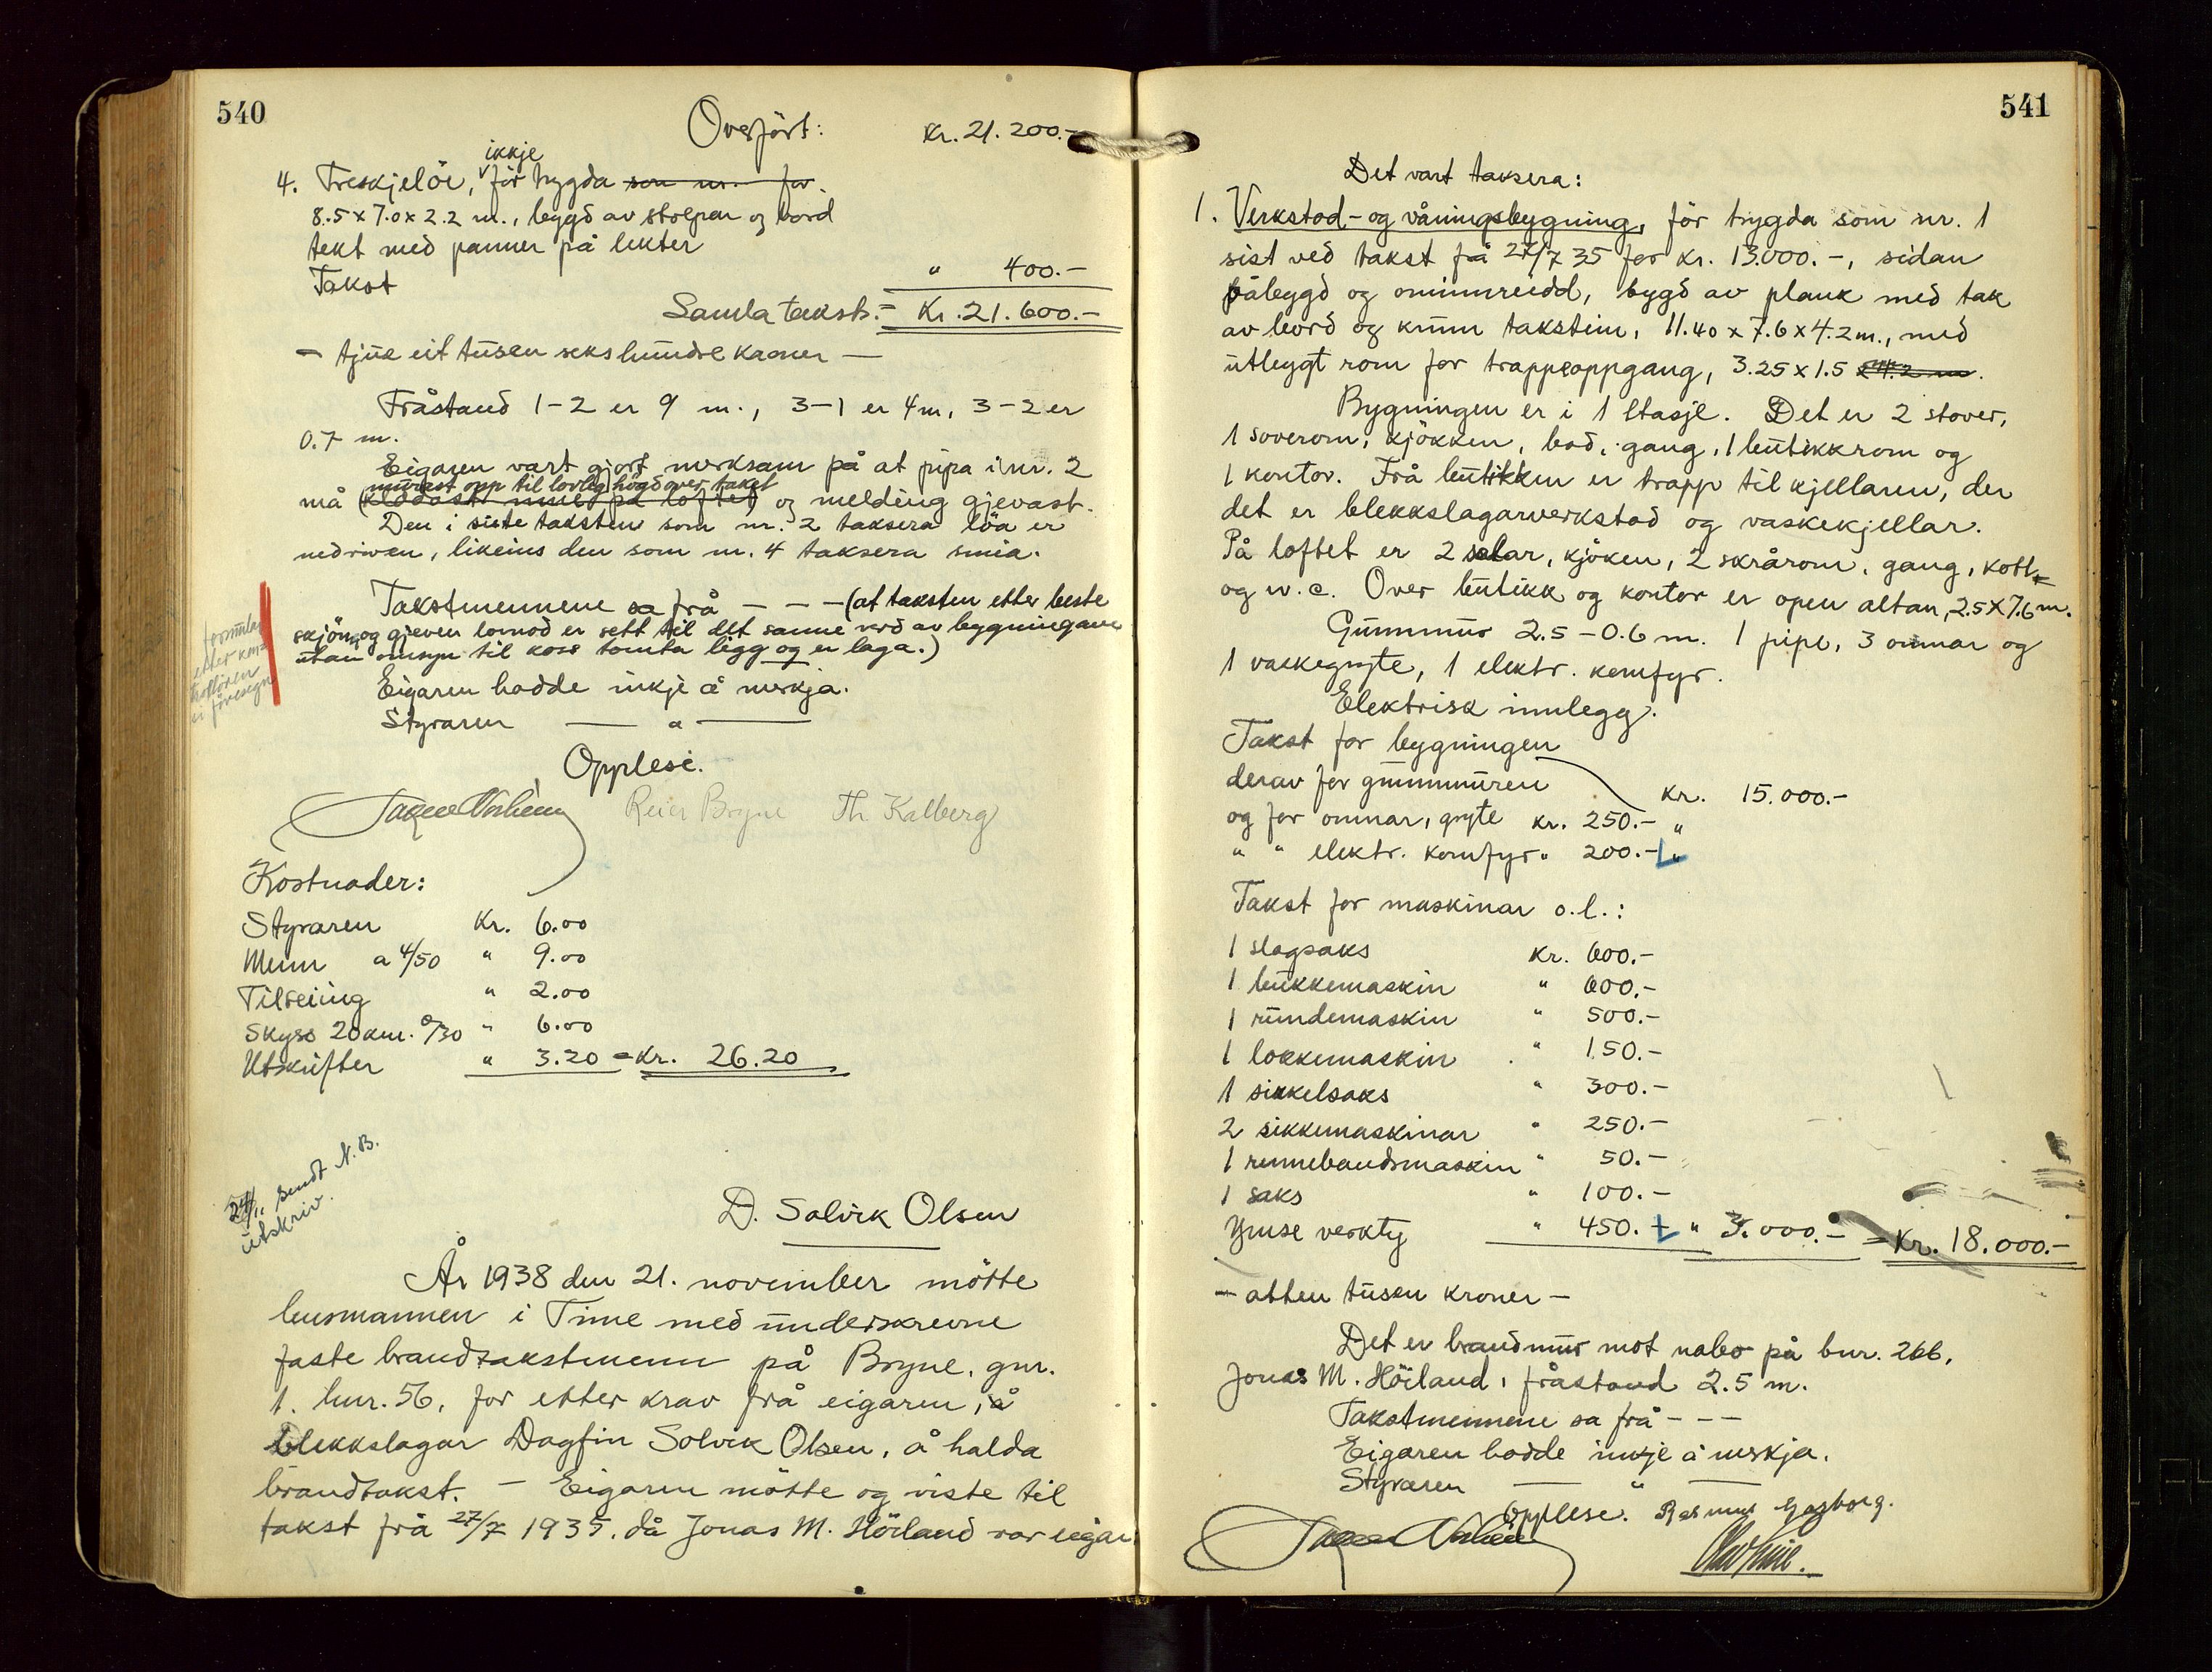 540
Overfört: Kr. 21.200.-
ikkje
4. Treskjelöe, för trygda som nr. for
8.5 x 7.0 x 2.2 m., bygd av stolpar og bord
tekt med panner på lekter
Takst " 400.-
Samla takst. = Kr. 21.600.-
- tjue eit tusen seks hundre kroner -
Fråstand 1-2 er 9 m., 3-1 er 4 m, 3-2 er
0.7 m.
Eigaren vart gjort merksam på at pipa i nr. 2
murast opp til lovleg högd over taket
må klædast med på loftet og melding gjevast.
Den i siste taksten som nr. 2 taksera löa er
nedriven, likeins den som nr. 4 taksera smia.
Takstmennene sa frå - - - (at taksten etter beste
skjön og gjeven lovnod er sett til det sanne verd av bygningane
utan omsyn til kos tomta ligg og er laga.)
Eigaren hadde inkje å merkja.
Styraren — " —
Opplesi.
Reier Bryne Th. Kalberg
Kostnader:
Styraren Kr. 6.00
Menn a 4/50 " 9.00
Tilseiing " 2.00
Skyss 20 km. a/30 " 6.00
Utskrifter " 3.20 = Kr. 26.20
24/11 sendt N.B.
utskriv.
D. Solvik Olsen
År 1938 den 21. november mötte
lensmannen i Time med underskrevne
faste brandtakstmenn på Bryne, gnr.
1. bnr. 56, for etter krav frå eigaren, å
blekkslagar Dagfin Solvik Olsen, å halda
brandtakst. - Eigaren mötte og viste til
takst frå 27/7 1935, då Jonas M. Höiland var eigar
541
Det vart taksera:
1. Verkstad- og våningsbygning, för trygda som nr. 1
sist ved takst frå 27/7 35 for kr. 13.000.-, sidan
påbygd og ominnreidd, bygd av plank med tak
av bord og krum takstein, 11.40 x 7.6 x 4.2 m., med
utbygt rom for trappeoppgang, 3.25 x 1.5 x 4.2 m.
Bygningen er i 1 etasje. Det er 2 stover,
1 soverom, kjökken, bad, gang, 1 butikkrom og
1 kontor. Frå butikken er trapp til kjellaren, der
det er blekkslagarverkstad og vaskekjellar.
På loftet er 2 salar, kjöken, 2 skrårom, gang, kott
og w.c. Over butikk og kontor er open altan, 2.5 x 7.6 m.
Grunnmur 2.5 - 0.6 m. 1 pipe, 3 omnar og
1 vaskegryte, 1 elektr. komfyr.
Elektrisk innlegg.
Takst for bygningen
derav for grunnmuren Kr. 15.000.-
og for omnar, gryte Kr. 250.- "
" " elektr. komfyr " 200.- "
Takst for maskinar o.l.:
1 slagsaks Kr. 600.-
1 bukkemaskin " 600.-
1 rundemaskin " 500.-
1 lokkemaskin " 150.-
1 sikkelsaks " 300.-
2 sikkemaskinar " 250.-
1 rennebandsmaskin " 50.-
1 saks " 100.-
Ymse verkty " 450.- " 3.000.- = Kr. 18.000.-
- atten tusen kroner -
Det er brandmur mot nabo på bnr. 266,
Jonas M. Höiland, fråstand 2.5 m.
Takstmennene sa frå - - -
Eigaren hadde inkje å merkja.
Styraren — " —
Opplese. Rasmus Garborg.